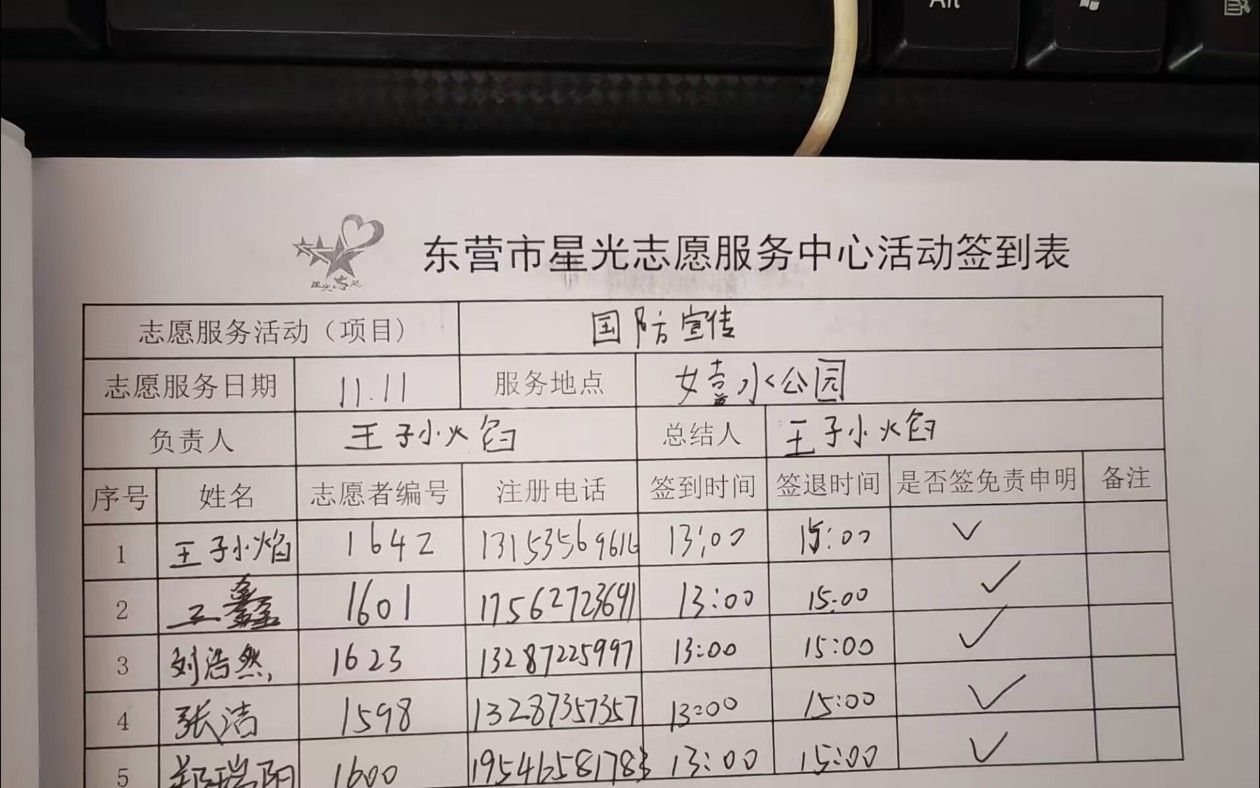 Alt
东营市星光志愿服务中心活动签到表
志愿服务活动（项目） 国防宣传
志愿服务日期 11.11 服务地点 水公园
负责人 王子小火焰 总结人 王子小火焰
序号 姓名 志愿者编号 注册电话 签到时间 签退时间 是否签免责申明 备注
1 王子小焰 1642 13:00 15:00 ✓
2 王鑫 1601 17562723691 13:00 15:00 ✓
3 刘浩然 1623 13287225997 13:00 15:00 ✓
4 张洁 1598 13287357357 13:00 15:00 ✓
5 郑瑞阳 1600 19546581783 13:00 15:00 ✓